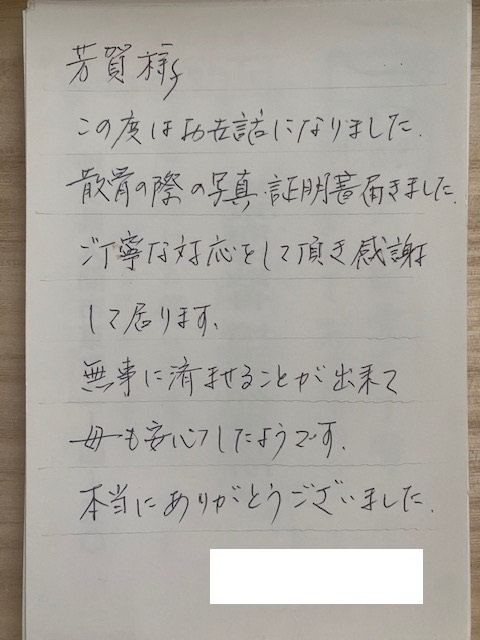 芳賀様
この度はお世話になりました.
散骨の際の写真、証明書届きました.
ご丁寧な対応をして頂き感謝
して居ります、
無事に済ませることが出来て
母も安心したようです.
本当にありがとうございました.